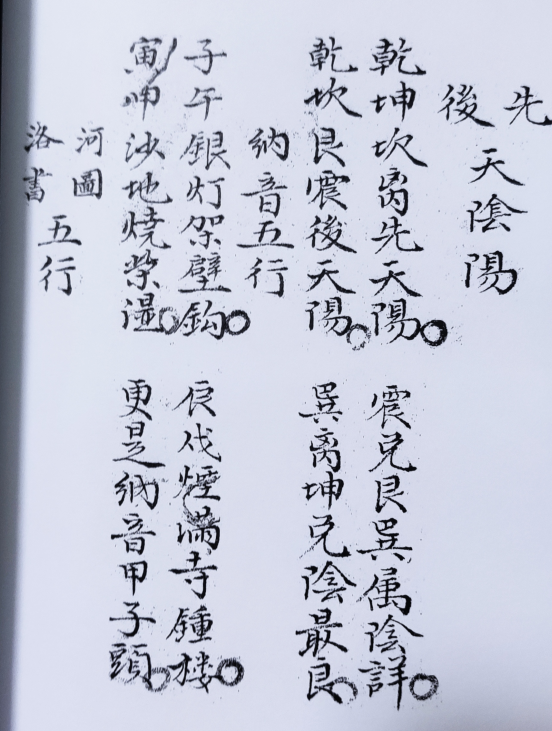 先後天陰陽
乾坤坎离先天陽○震兌艮巽属陰詳○
乾坎艮震後天陽○巽离坤兌陰最良○
納音五行
子午銀灯架壁鈎○辰戌煙滿寺鍾楼○
寅申沙地燒柴湿○更是納音甲子頭○
河圖洛書五行